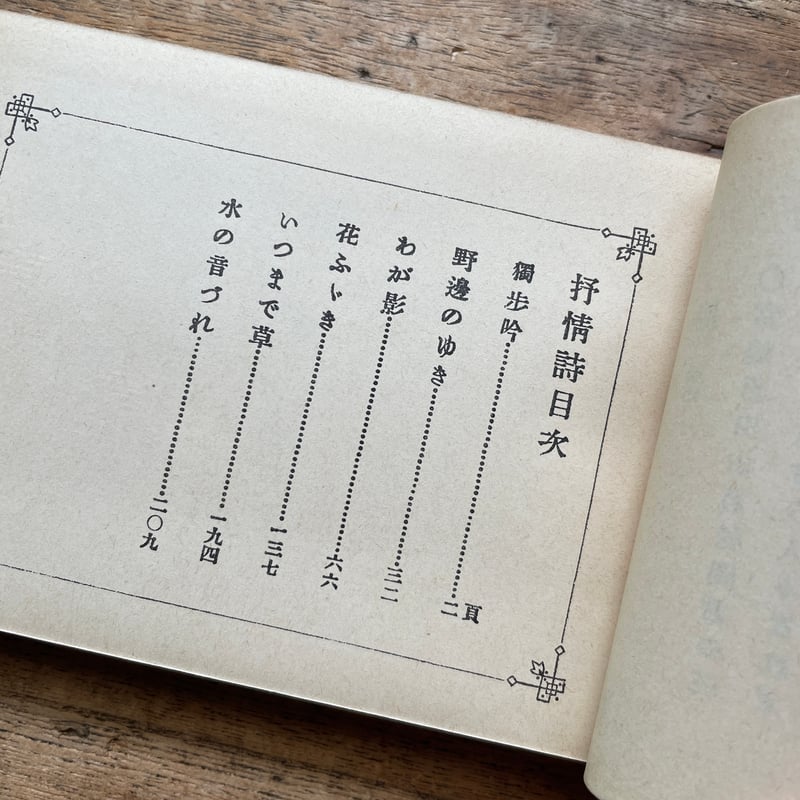 抒情詩目次
頁
獨歩吟……二
野邊のゆき……三二
わが影……六六
花ふゞき……一三七
いつまで草……一九四
水の音づれ……二〇九